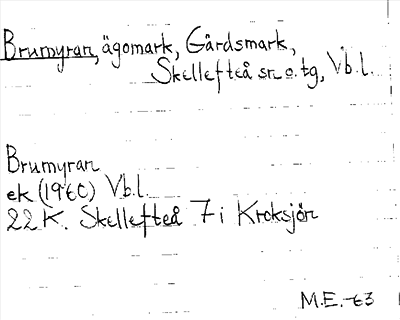 Brumyran, ägomark, Gårdsmark,
Skellefteå sn o. tg, Vb.l.
Brumyran
ek (1960) Vb.l.
22 K. Skellefteå 7 i Kroksjön
M.E.-63